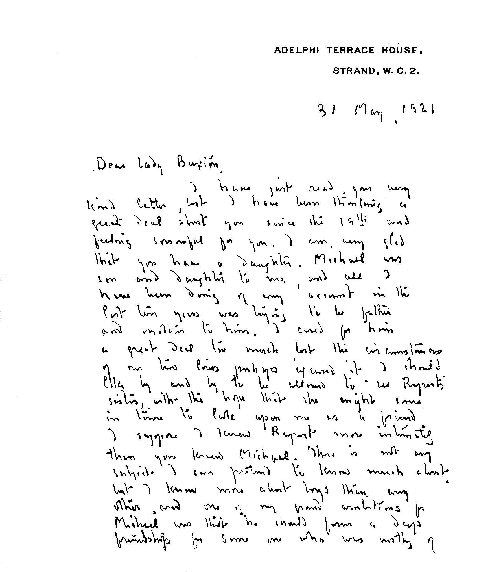 ADELPHI TERRACE HOUSE,
STRAND, W. C. 2.
31 May, 1921
Dear Lady Buxton,
I have just read your very
kind letter, but I have been thinking a
great deal about you since the 19th and
feeling sorrowful for you. I am very glad
that you have a daughter. Michael was
son and daughter to me, and all I
have been doing of any account in the
last ten years was trying to be father
and mother to him. I cared for him
a great deal too much but the circumstances
of our two lives perhaps excused it. I should
like by and by to be allowed to see Rupert's
sister, with the hope that she might come
in time to look upon me as a friend
I suppose I knew Rupert more intimately
than you knew Michael. There is not any
subject I can pretend to know much about,
but I know more about boys than any
other, and one of my grand ambitions for
Michael was that he should form a deep
friendship for some one who was worthy of